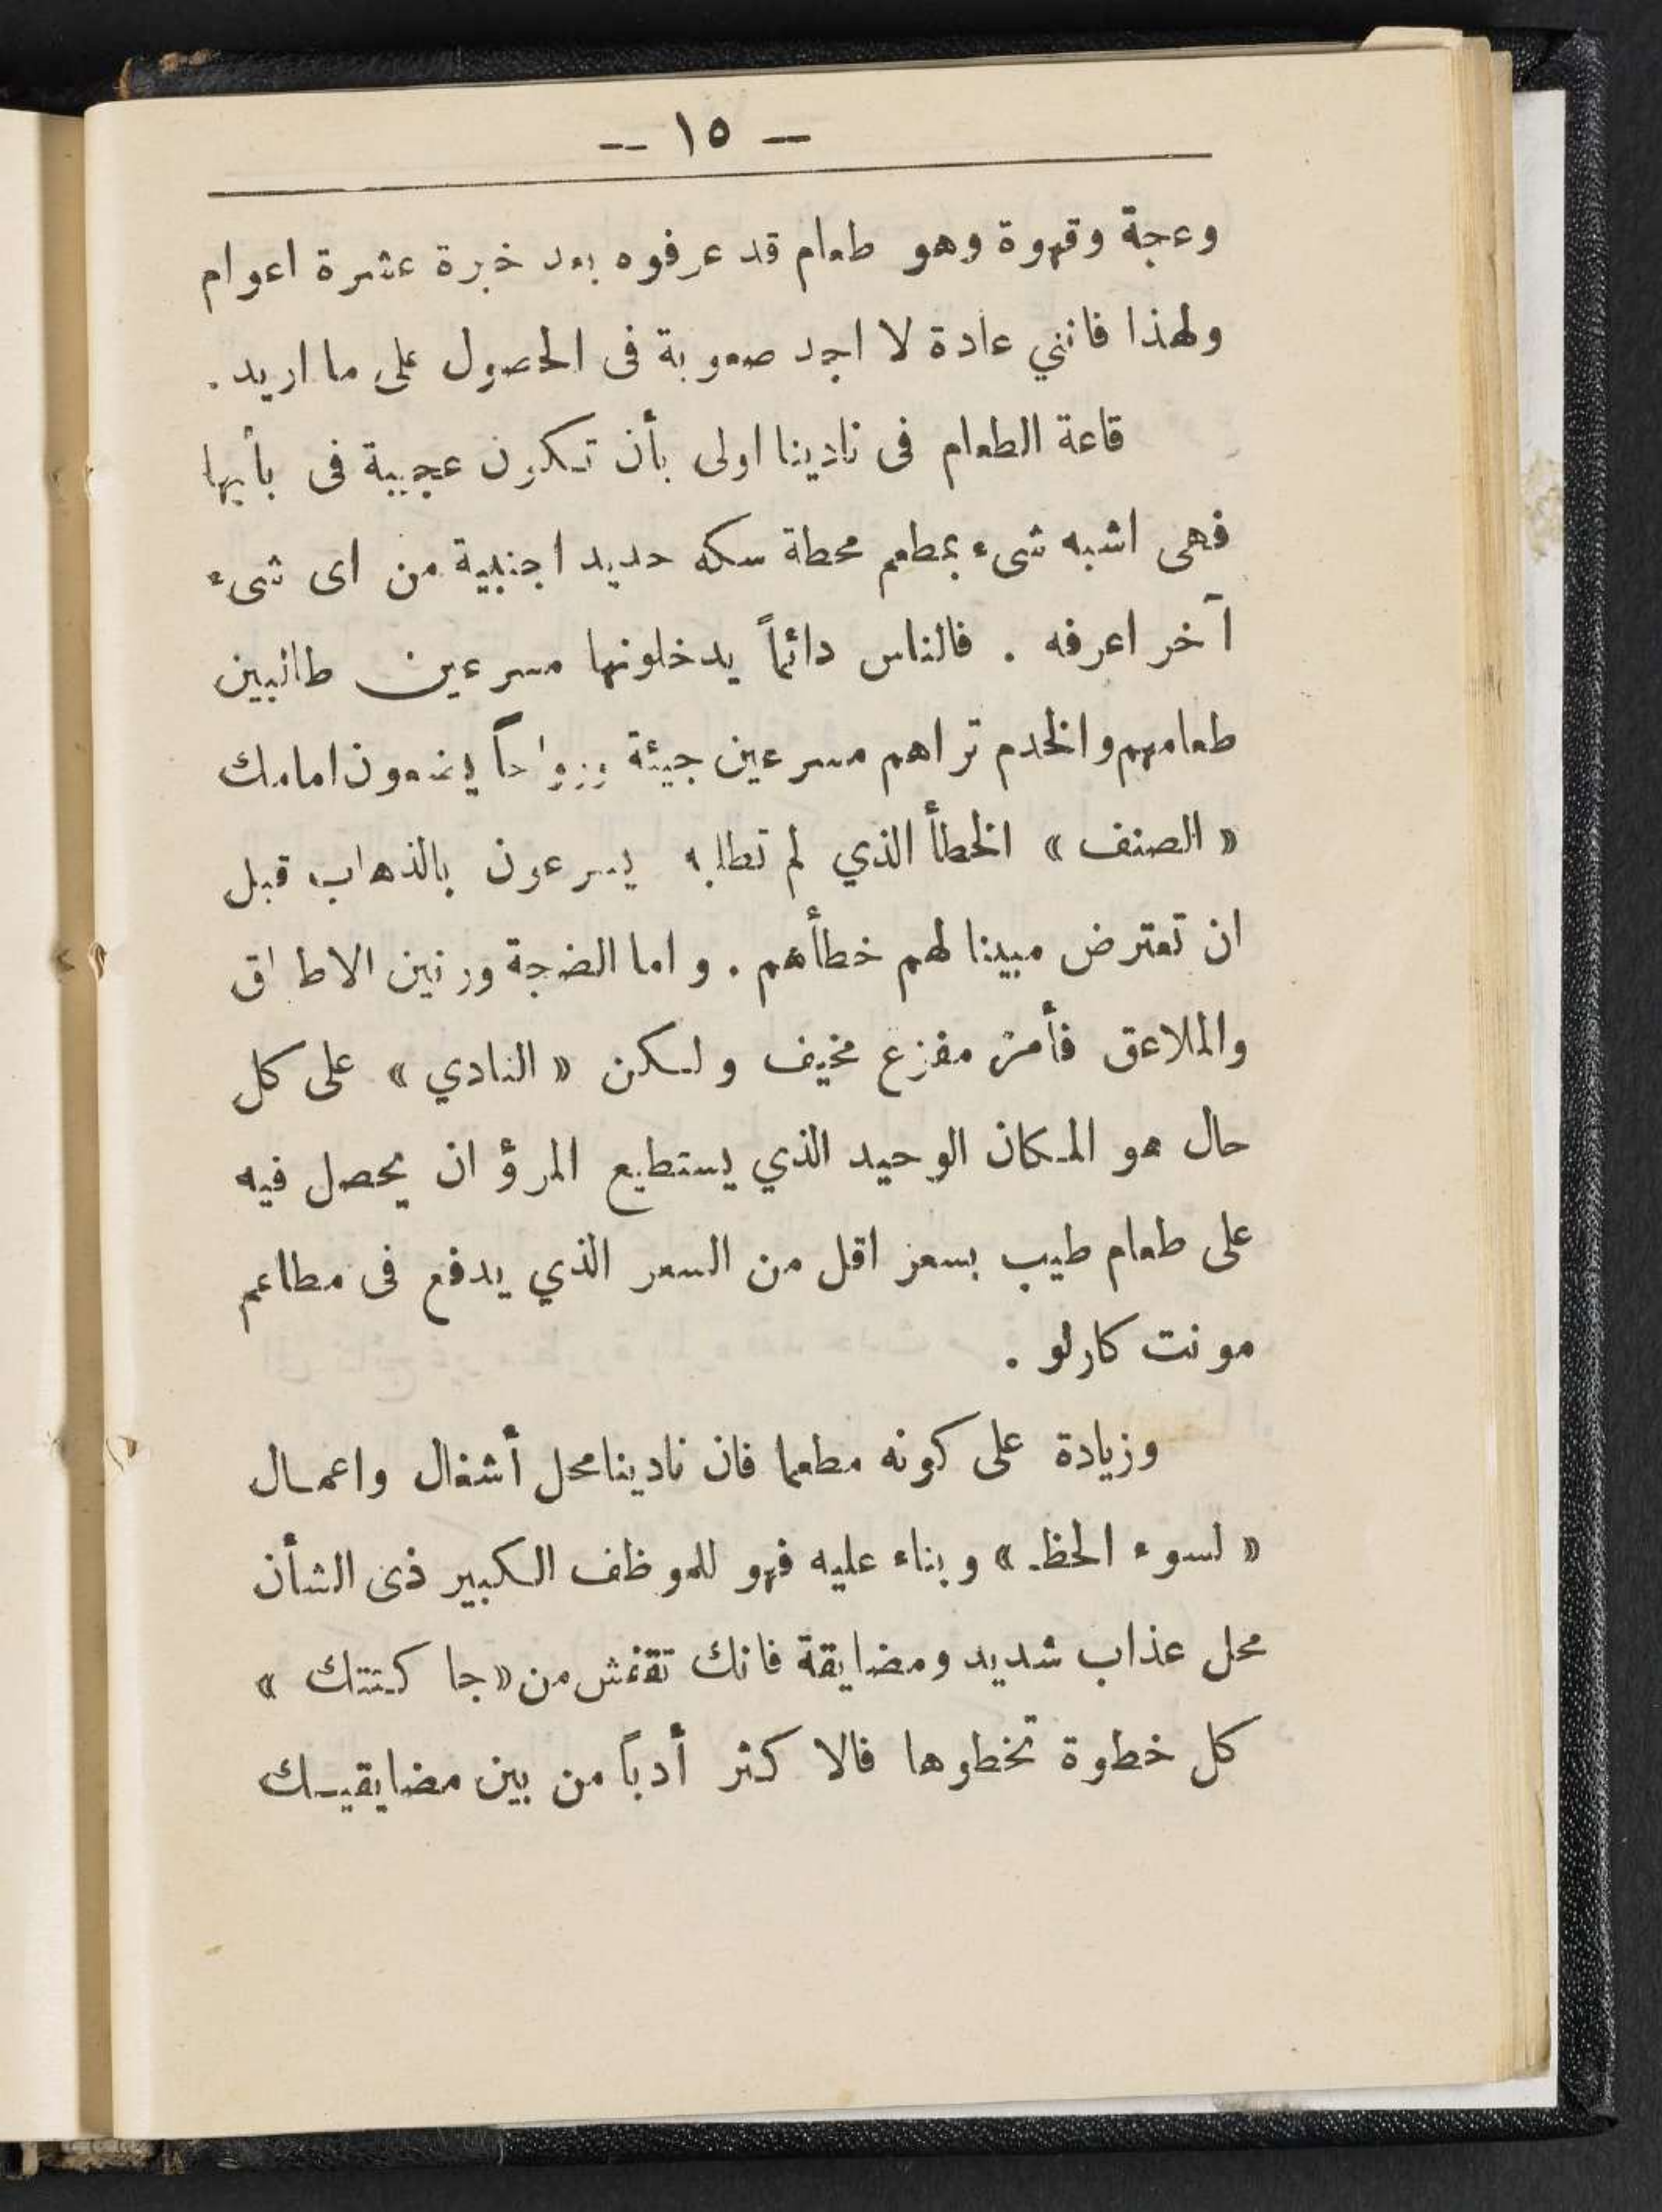 — ١٥ —
وعجة وقهوة وهو طعام قد عرفوه بعد خبرة عشرة اعوام
ولهذا فانني عادة لا اجد صعوبة فى الحصول على ما اريد .
قاعة الطعام فى نادينا اولى بأن تكون عجيبة فى بأبها
فهى اشبه شىء بمطعم محطة سكه حديد اجنبية من اى شىء
آخر اعرفه . فالناس دائماً يدخلونها مسرعين طالبين
طعامهم والخدم تراهم مسرعين جيئة ورواحاً يضعون امامك
« الصنف » الخطأ الذي لم تطلبه يسرعون بالذهاب قبل
ان تعترض مبينا لهم خطأهم . واما الضجة ورنين الاطباق
والملاعق فأمر مفزع مخيف ولكن « النادي » على كل
حال هو المكان الوحيد الذي يستطيع المرؤ ان يحصل فيه
على طعام طيب بسعر اقل من السعر الذي يدفع فى مطاعم
مونت كارلو .
وزيادة على كونه مطعما فان نادينا محل أشغال واعمال
« لسوء الحظ » وبناء عليه فهو للموظف الكبير ذى الشأن
محل عذاب شديد ومضايقة فانك تقفش من « جا كتتك »
كل خطوة تخطوها فالا كثر أدباً من بين مضايقيك